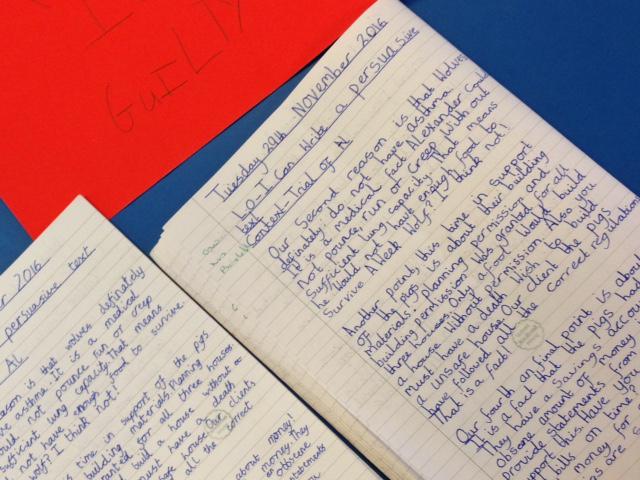 GUILTY
Tuesday 29th November 2016
LO-I Can Write a persuasive
text
Context-Trial of A
Our Second reason is that Wolves
definately do not have asthma.
It is a medical fact Alexander
not pounce, run or creep with out
Sufficient lung capacity. That means
he Would not have enough food to
Survive A Week Wolf? I think not!
Another point, this time in support
of the pigs is about their building
Materials. Planning permission and
building permission was granted for all
three houses. Only a fool Would build
a house Without permission. Also you
Must have a death Wish to build
a unsafe house. Our client the pigs
have followed all the correct regulations
That is a fact!
Our fourth an final point is about
It is a fact that the pigs
They have a Savings
Obsene amount of money
provide statements from
support this. Have you
bills on time
2016
persuasive text
AL
reason is that wolves definately
asthma. It is a medical
not pounce run or creep
Sufficient lung capacity. That means
not have enough food to survive.
wolf? I think not!
time in support of the pigs
materials. Planning
building
for all three houses
build a house without
must have a death
house. Our clients
all the correct
about money!
money. They
an obscene
statements